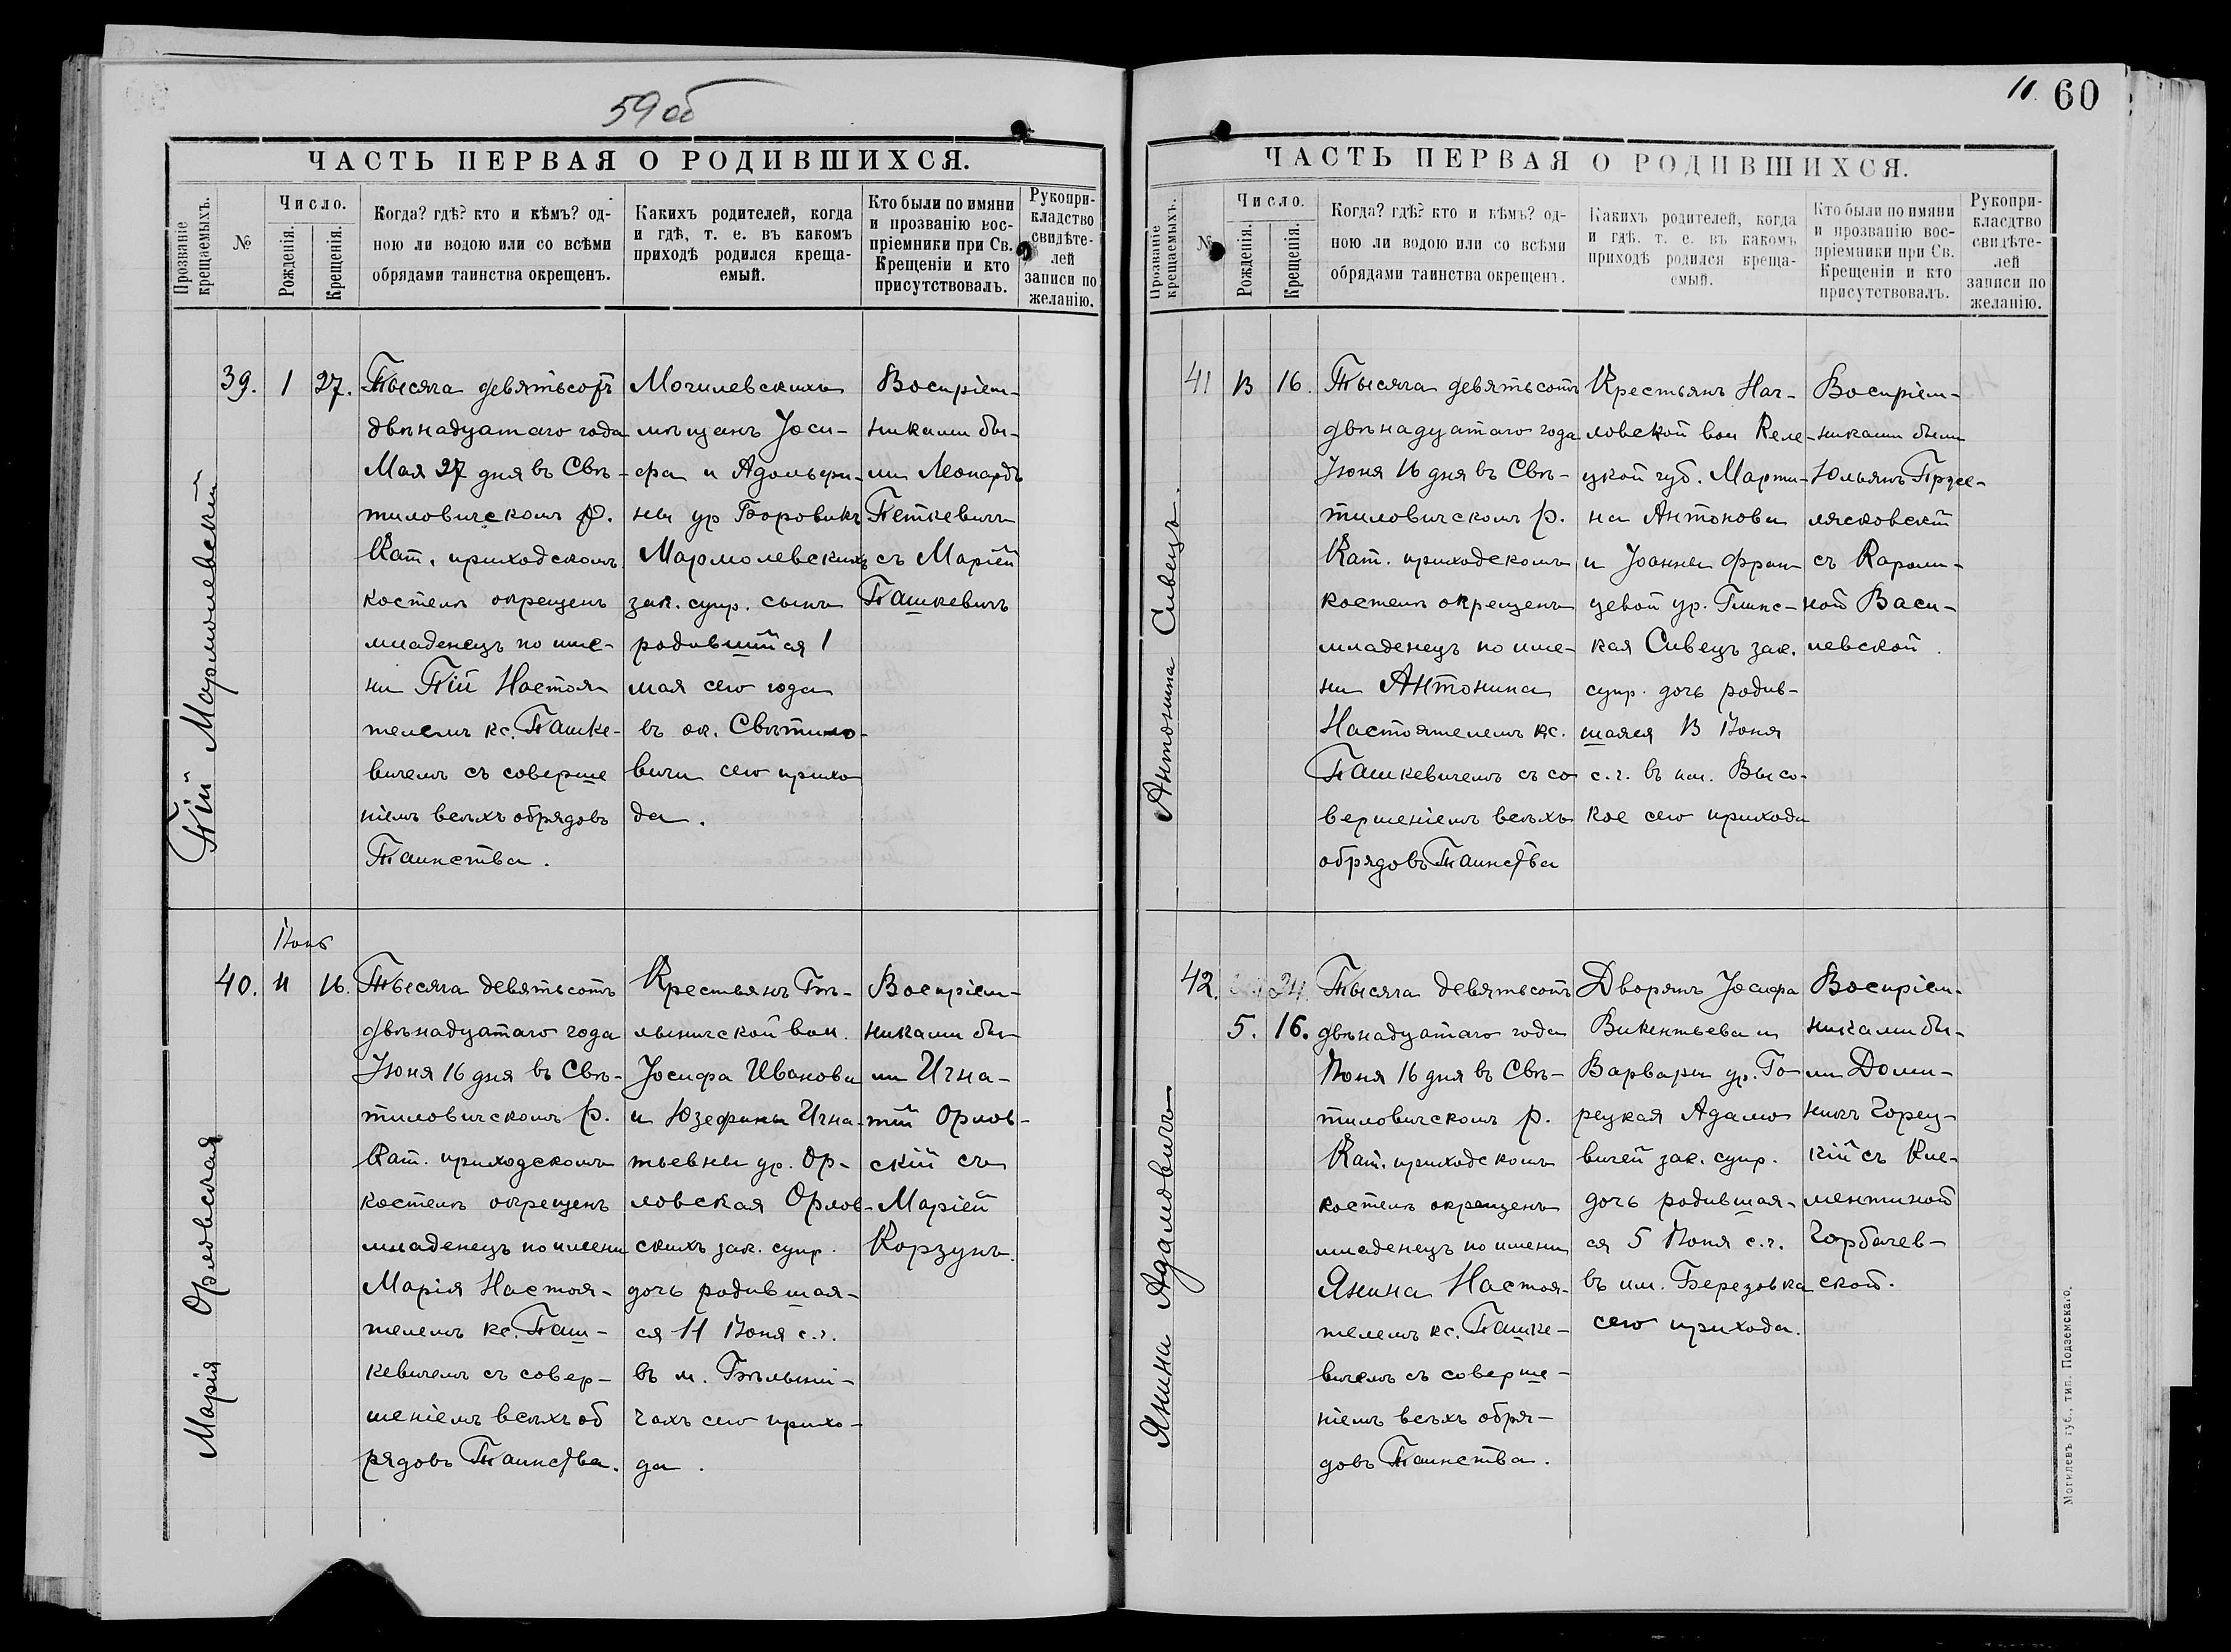 59 об
ЧАСТЬ ПЕРВАЯ О РОДИВШИХСЯ.
Прозваніе крещаемыхъ.
№
Число.
Рожденія.
Крещенія.
Когда? гдѣ? кто и кѣмъ? од-
ною ли водою или со всѣми
обрядами таинства окрещенъ.
Какихъ родителей, когда
и гдѣ, т. е. въ какомъ
приходѣ родился креща-
емый.
Кто были по имяни
и прозванію вос-
пріемники при Св.
Крещеніи и кто
присутствовалъ.
Рукопри-
кладство
свидѣте-
лей
записи по
желанію.
Пій Мармолевскій
39.
1
27.
Тысяча девятьсотъ
двѣнадцатаго года
Мая 27 дня въ Свѣ-
тиловичскомъ р.
Кат. приходскомъ
костелѣ окрещенъ
младенецъ по име-
ни Пій Настоя-
телемъ кс. Пашке-
вичемъ съ соверше
ніемъ всѣхъ обрядовъ
Таинства.
Могилевскихъ
мѣщанъ Јоси-
фа и Адольфи-
ны ур Боровикъ
Мармолевскихъ
зак. супр. сынъ
родившійся 1
мая сего года
въ ок. Свѣтило-
вичи сего прихо
да.
Воспріем-
никами бы-
ли Леонардъ
Петкевичъ
съ Маріей
Пашкевичъ
Марія Орловская
Іюнь
40.
11
16.
Тысяча девятьсотъ
двѣнадцатаго года
Јюня 16 дня въ Свѣ-
тиловичскомъ р.
Кат. приходскомъ
костелѣ окрещенъ
младенецъ по имени
Марія Настоя-
телемъ кс. Паш-
кевичемъ съ совер-
шеніемъ всѣхъ об
рядовъ Таинства.
Крестьянъ Бѣ-
лыничской вол.
Јосифа Иванова
и Юзефины Игна-
тьевны ур. Ор-
ловская Орлов-
скихъ зак. супр.
дочь родившая-
ся 11 Іюня с.г.
въ м. Бѣлыни-
чахъ сего прихо-
да.
Воспріем-
никами бы-
ли Игна-
тій Орлов-
скій съ
Маріей
Корзунъ.
11.
60
ЧАСТЬ ПЕРВАЯ О РОДИВШИХСЯ.
Прозваніе крещаемыхъ.
№
Число.
Рожденія.
Крещенія.
Когда? гдѣ? кто и кѣмъ? од-
ною ли водою или со всѣми
обрядами таинства окрещенъ.
Какихъ родителей, когда
и гдѣ. т. е. въ какомъ
приходѣ родился креща-
емый.
Кто были по имяни
и прозванію вос-
пріемники при Св.
Крещеніи и кто
присутствовалъ.
Рукопри-
класдтво
свидѣте-
лей
записи по
желанію.
Антонина Сивецъ.
41
13
16.
Тысяча девятьсотъ
двѣнадцатаго года
Јюня 16 дня въ Свѣ-
тиловичскомъ р.
Кат. приходскомъ
костелѣ окрещенъ
младенецъ по име-
ни Антонина
Настоятелемъ кс.
Пашкевичемъ съ со
вершеніемъ всѣхъ
обрядовъ Таинства
Крестьянъ Наг-
ловской вол Келе-
цкой губ. Марти-
на Антонова
и Јоанны Фран
цевой ур. Глинс-
кая Сивецъ зак.
супр. дочь родив-
шаяся 13 Іюня
с.г. въ им. Высо-
кое сего прихода
Воспріем-
никами были
Юльянъ
съ Кароли-
ной Васи-
левской.
Янина Адамовичъ
42.
24.
5.
16.
Тысяча девятьсотъ
двѣнадцатаго года
Іюня 16 дня въ Свѣ-
тиловичскомъ р.
Кат. приходскомъ
костелѣ окрещенъ
младенецъ по имени
Янина Настоя-
телемъ кс. Пашке-
вичемъ съ соверше-
ніемъ всѣхъ обря-
довъ Таинства.
Дворянъ Јосифа
Викентьева и
Варвары ур. Го-
рецкая Адамо
вичей зак. супр.
дочь родившая-
ся 5 Іюня с.г.
въ им. Березовка
сего прихода.
Воспріем-
никами бы-
ли Доми-
никъ Горец-
кій съ Кле-
ментиной
Горбачев-
ской.
Могилевъ губ., тип. Подземскаго.